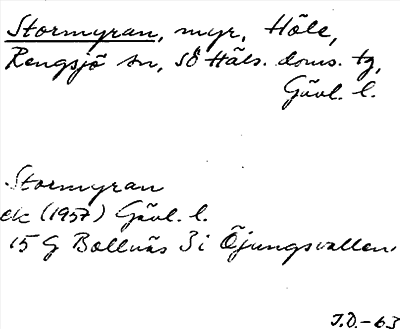 Stormyran, myr, Höle,
Rengsjö sn, SÖ Häls. doms. tg,
Gävl. l.
Stormyran
ek (1957) Gävl. l.
15 G Bollnäs 3 i Öjungsvallen
J.D.-63